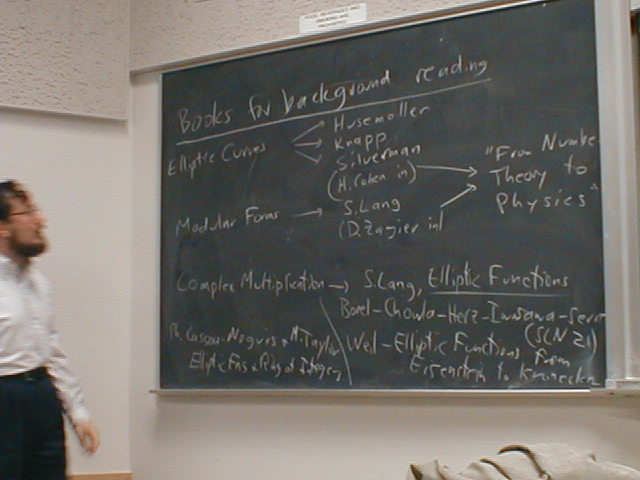 Books for background reading
Elliptic Curves
Husemoller
Knapp
Silverman
(H. Cohen in)
"From Number
Theory to
Physics"
Modular Forms → S. Lang
(D. Zagier in)
Complex Multiplication → S. Lang, Elliptic Functions
Borel-Chowla-Herz-Iwasawa-Serre
(SLN 21)
Ph. Cassou-Nogues & M. Taylor
Elliptic Fns & Rings of Integers
Weil - Elliptic Functions from
Eisenstein to Kronecker